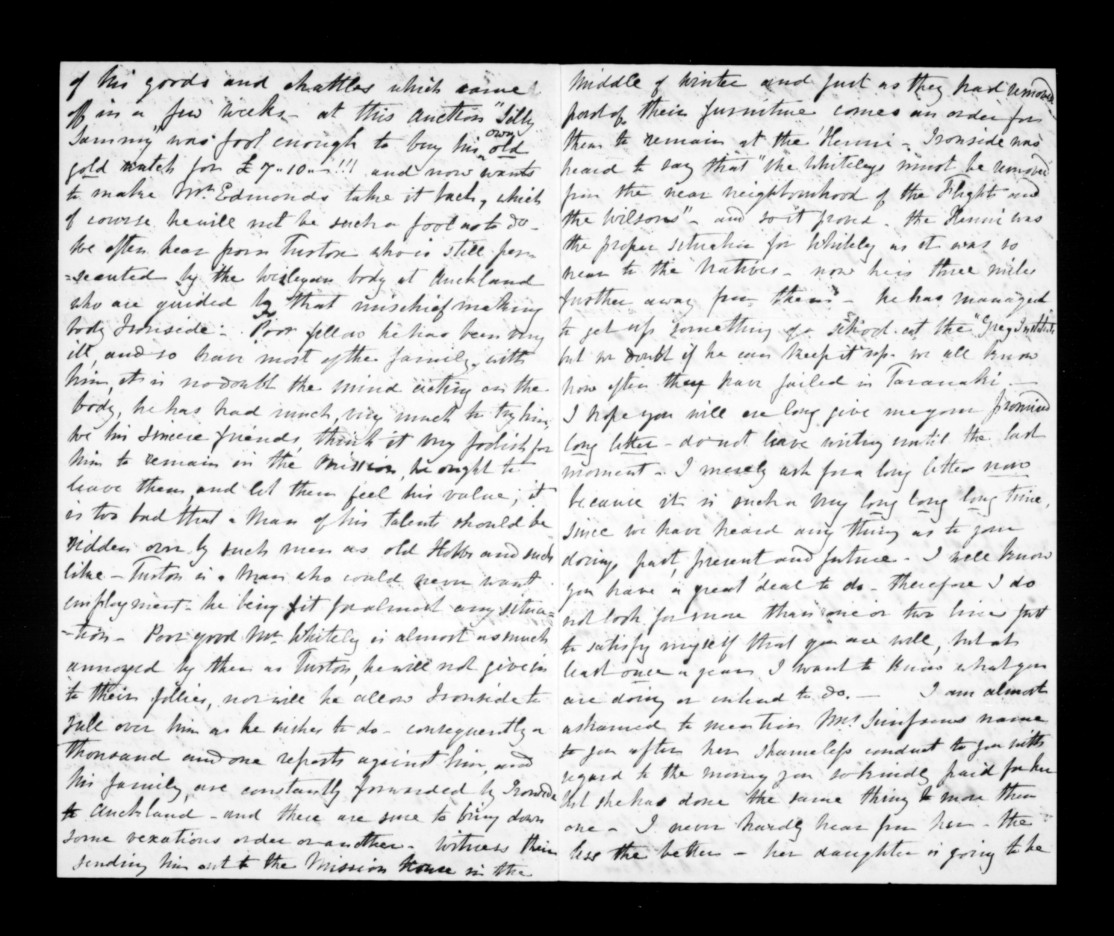 of his goods and chattles which came
off in a few weeks - at this auction "Silly
Sammy" was fool enough to buy his own old
gold watch for £7"10"-!!! and now wants
to make Mr Edmonds take it back, which
of course he will not be such a fool as to do -
We often hear from Turton who is still per-
=secuted by the Wesleyan body at Auckland
who are guided by that mischief making
body Ironside - Poor fellow he has been very
ill, and so have most of the family with
him, it is no doubt the mind acting on the
body, he has had much, very much to try him,
we his sincere friends think it very foolish for
him to remain in the mission, he ought to
leave them, and let them feel his value; it
is too bad that a Man of his talent should be
ridden over by such men as old Hobbs and such
like - Turton is a Man who would never want
employment - he being fit for almost any situa-
-tion - Poor good Mr Whitely is almost as much
annoyed by them as Turton, he will not give in
to their follies, nor will he allow Ironside to
rule over him as he wishes to do - consequently a
thousand and one reports against him, and
his family, are constantly forwarded by Ironside
to Auckland - and there are sure to bring down
some vexatious order or another - Witness their
sending him out to the Mission House in the
middle of winter and just as they had removed
part of their furniture comes an order for
them to remain at the Henui - Ironside was
heard to say that "the Whitelys must be removed
from the near neighbourhood of the Flight and
the Wilsons" - and so it proved - the Henui was
the proper situation for Whitely as it was so
near to the Natives - now he is three miles
further away from them - he has managed
to get up something of a school at the "Grey Institute"
but we doubt if he can keep it up - we all know
how often they have failed in Taranaki -
I hope you will ere long give me your promised
long letter - do not leave writing until the last
moment - I merely ask for a long letter now
because it is such a very long long long time,
since we have heard any thing as to your
doings past, present and future - I well know
you have a great deal to do - therefore I do
not look for more than one or two lines just
to satisfy myself that you are well, but at
least once a year I want to know what you
are doing or intend to do. - I am almost
ashamed to mention Mrs Simpsons name
to you after her shameless conduct to you with
regard to the money you so kindly paid for her
but she has done the same thing to more than
one - I never hardly hear from her - the
less the better - her daughter is going to be